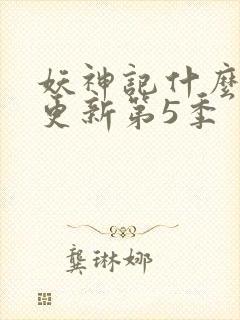 妖神記什麼
更新第5季
龔琳娜